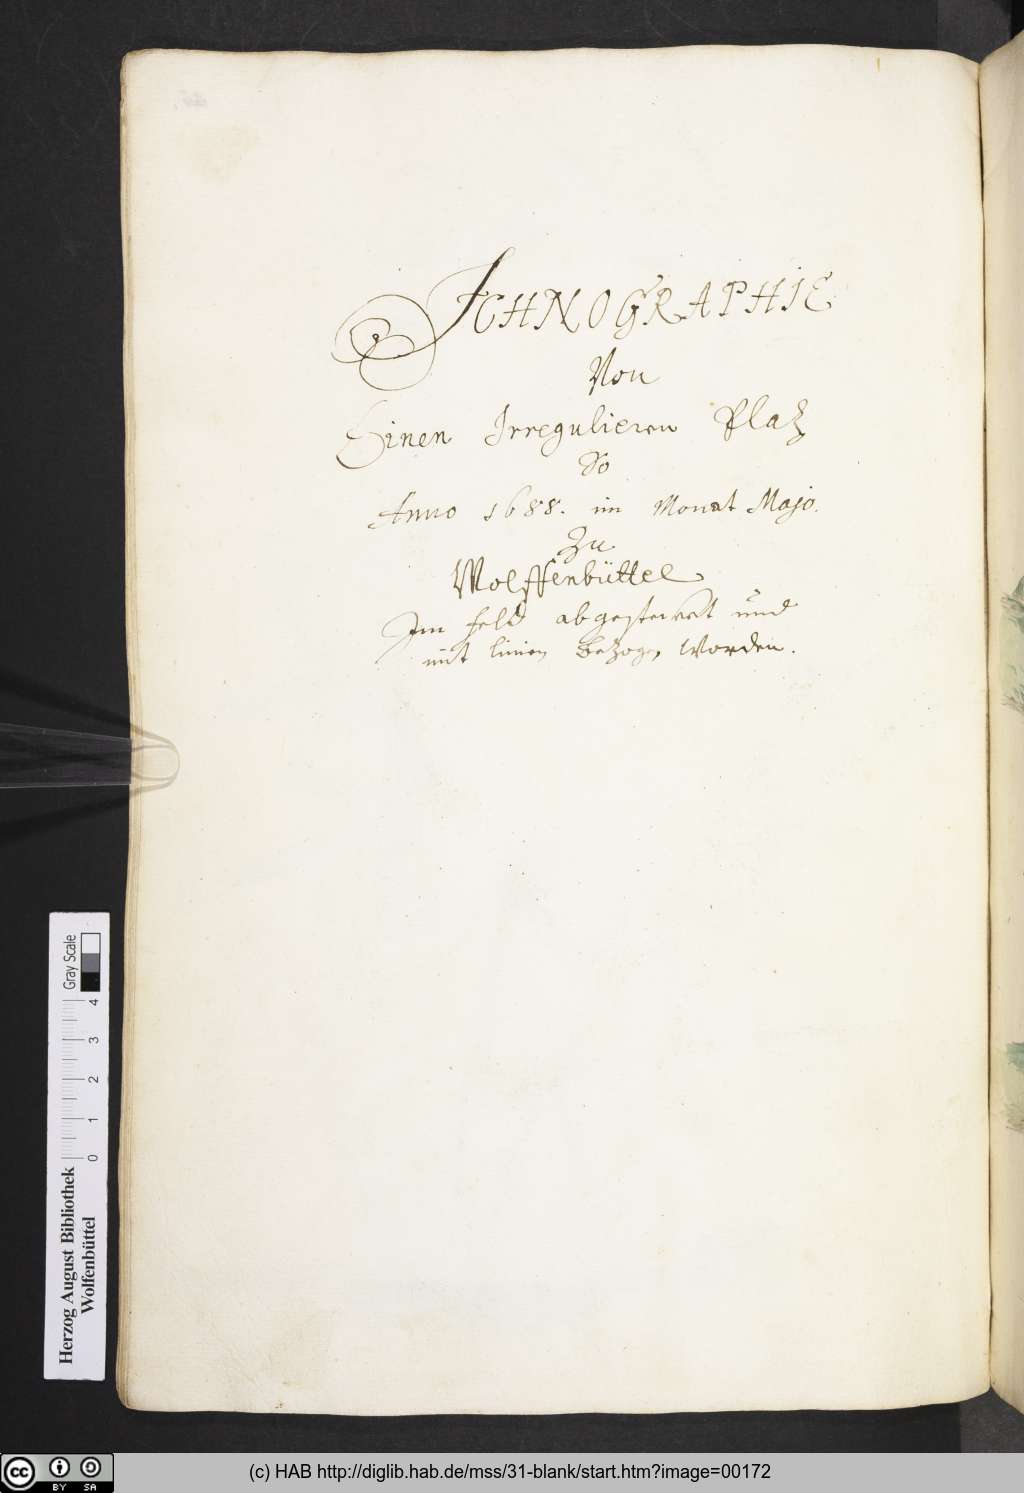 ICHNOGRAPHIE
Von
Einen Irregulieren Platz
So
Anno 1688. im Monat Majo.
Zu
Wolffenbüttel
Im feld abgestecket und
mit linien bezogen worden.
Gray Scale
0 1 2 3 4
Herzog August Bibliothek
Wolfenbüttel
(c) HAB http://diglib.hab.de/mss/31-blank/start.htm?image=00172
cc BY SA